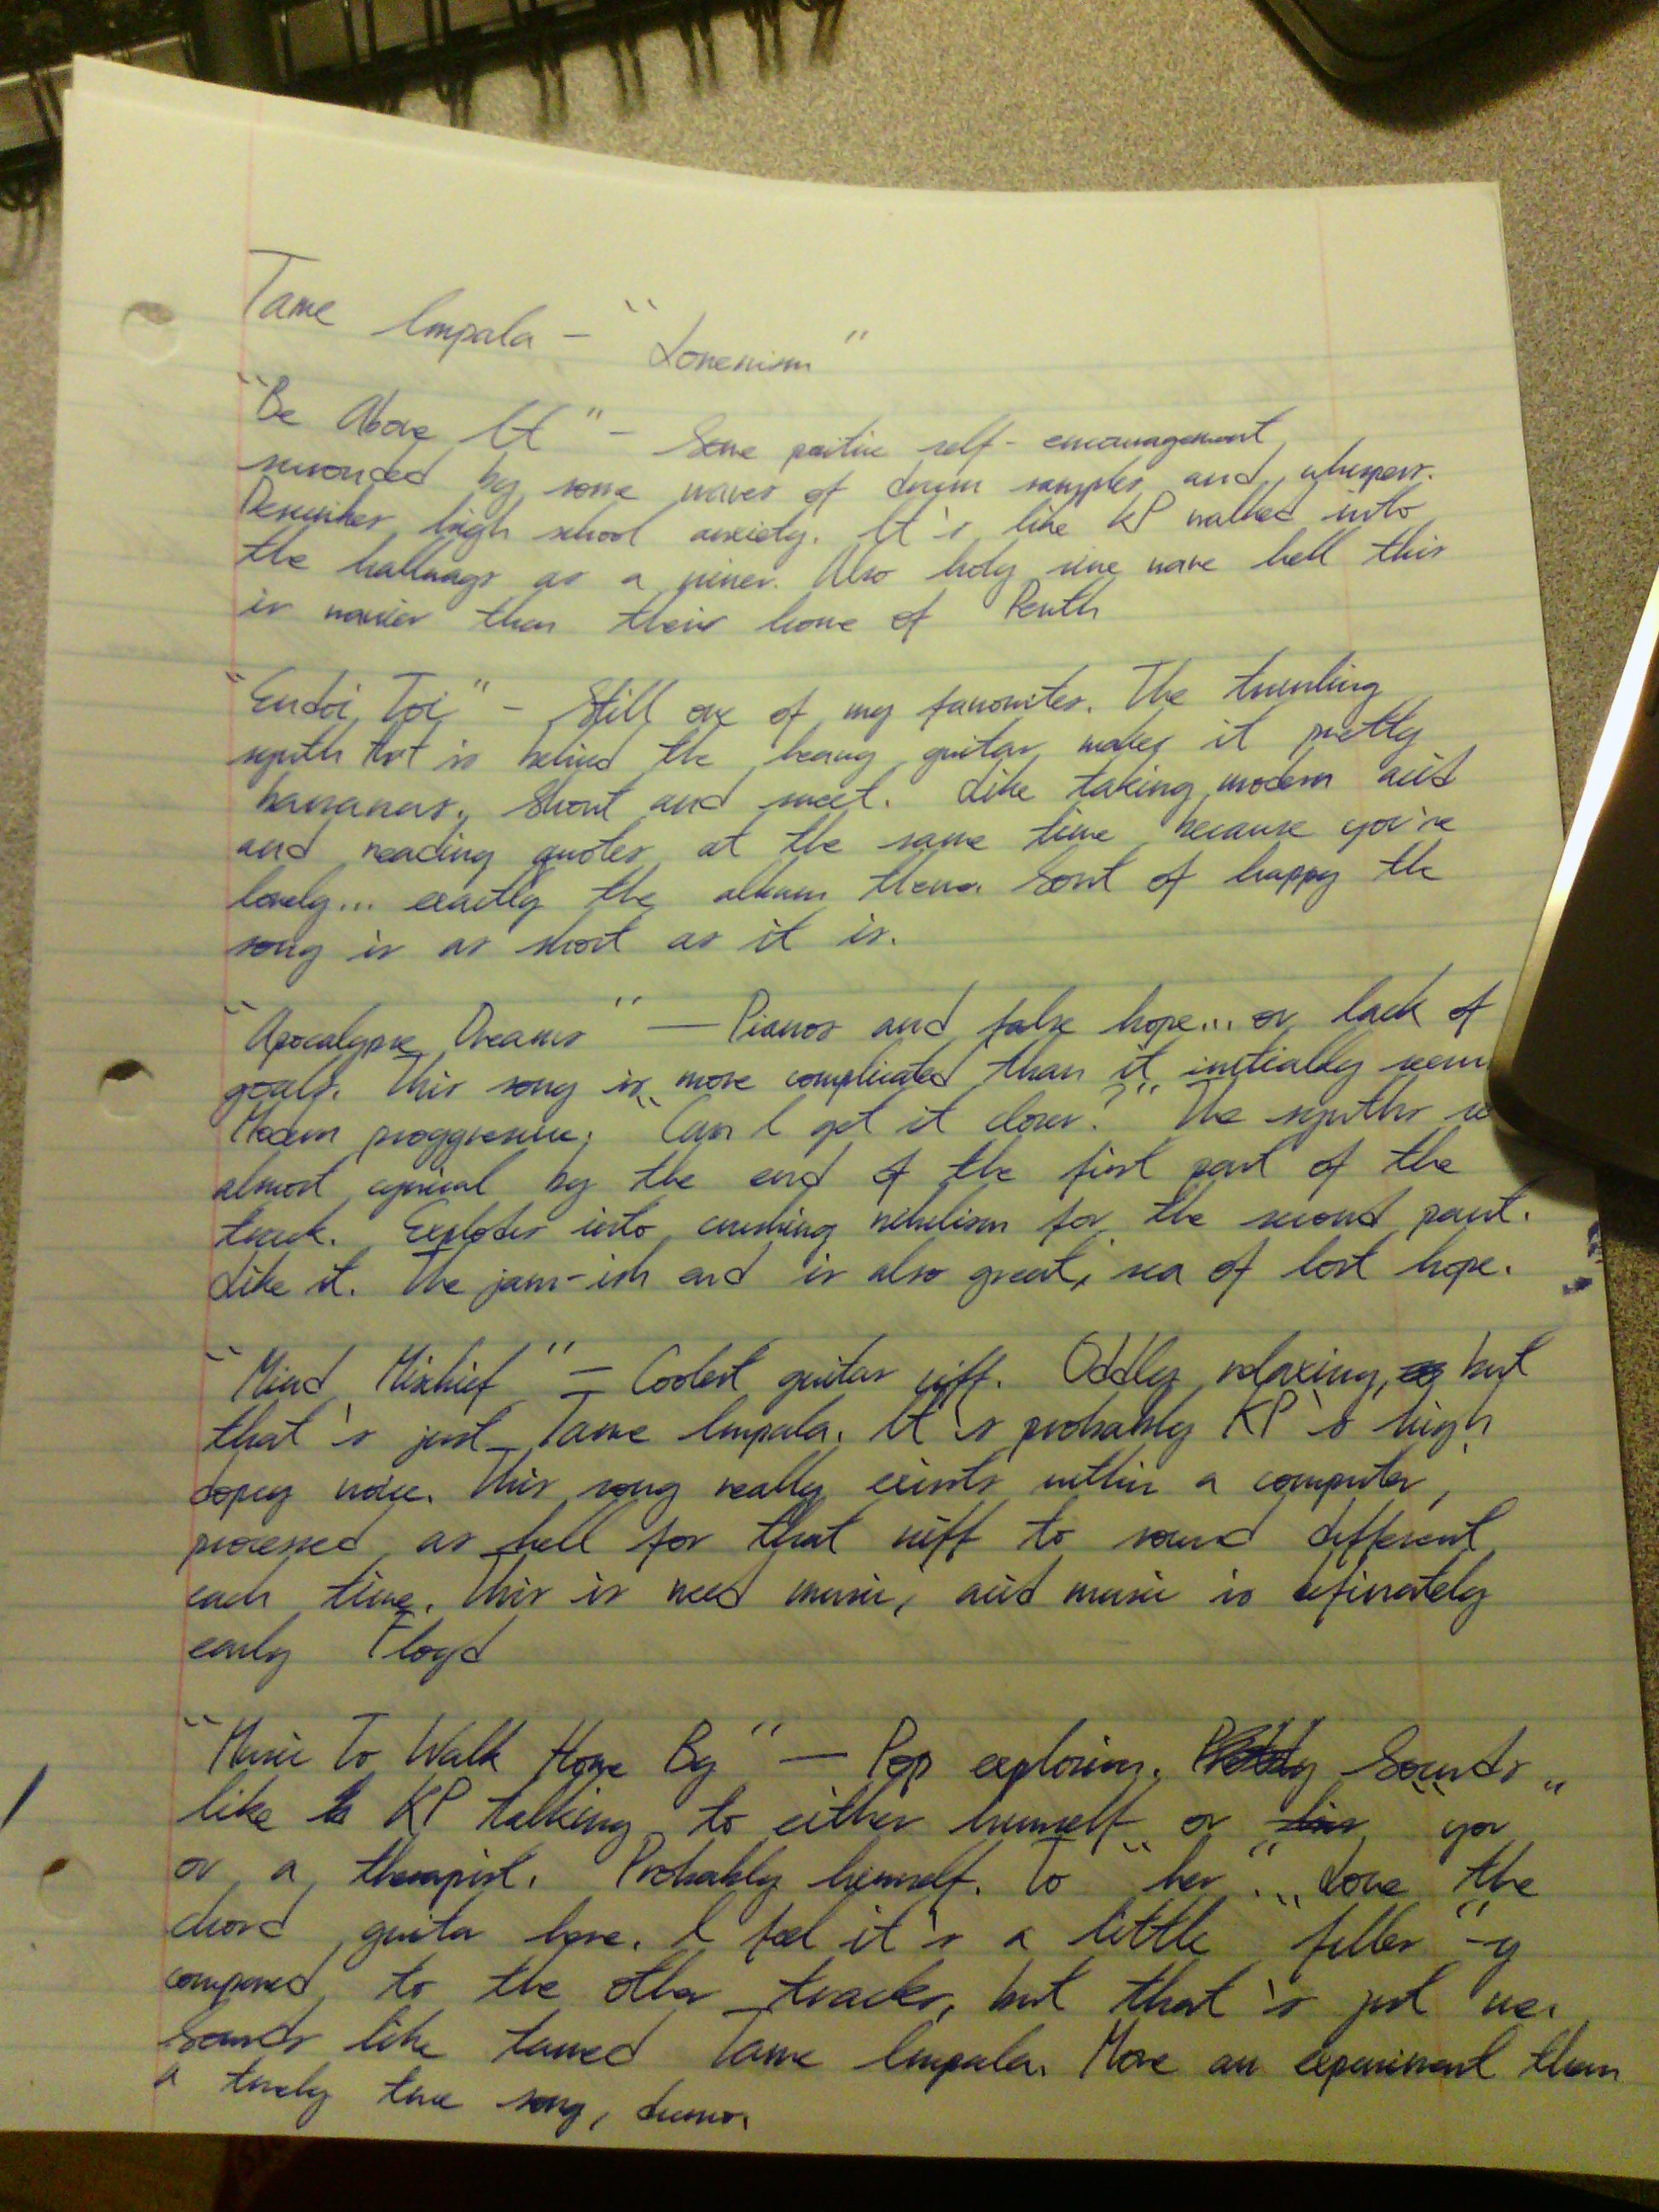 Tame Impala - "Lonerism"
"Be Above It" - Some positive self-encouragement,
surrounded by some waves of drum samples and whispers.
Describes high school anxiety. It's like KP walked into
the hallways as a niner. Also holy sine wave hell this
is wavier than their home of Perth
"Endoi Toi" - Still one of my favorites. The trembling
synth that is behind the heavy guitar makes it pretty
bananas. Short and sweet. Like taking modern acid
and reading quotes at the same time because you're
lonely... exactly the album theme. Sort of happy the
song is as short as it is.
"Apocalypse Dreams" — Pianos and false hope... or lack of
goals. This song is more complicated than it initially seems
Modern proggressive; "Can I get it closer?" The synths so
almost cynical by the end of the first part of the
track. Explodes into crushing nihilism for the second part.
Like it. The jam-ish end is also great, sea of lost hope.
"Mind Mischief" - Coolest guitar riff. Oddly relaxing, but
that's just Tame Impala. It's probably KP's high
dopey voice. This song really exists within a computer,
processed as hell for that riff to sound different
each time. This is weed music, acid music is definately
early Floyd
"Music To Walk Home By" — Pop explosion. Sounds
like KP talking to either himself or "you"
or a therapist. Probably himself. To "her"... Love the
chord guitar here. I feel it's a little "filler"-y
compared to the other tracks, but that's just me.
Sounds like tamed Tame Impala. More an experiment than
a truly true song, dunno.